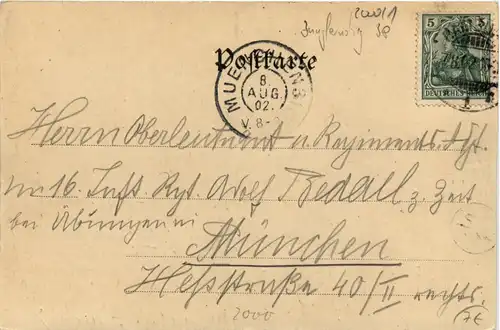 20001
5
DEUTSCHES REICH
Postkarte
MUENCHEN
8.
AUG.
02.
V. 8-
Herrn Oberleutnant u. Regiments Adj.
im 16. Inft. Rgt. Adolf Bedall z. Zeit
bei Übungen in
München
Heßstraße 40/II rechts.
2000
7€